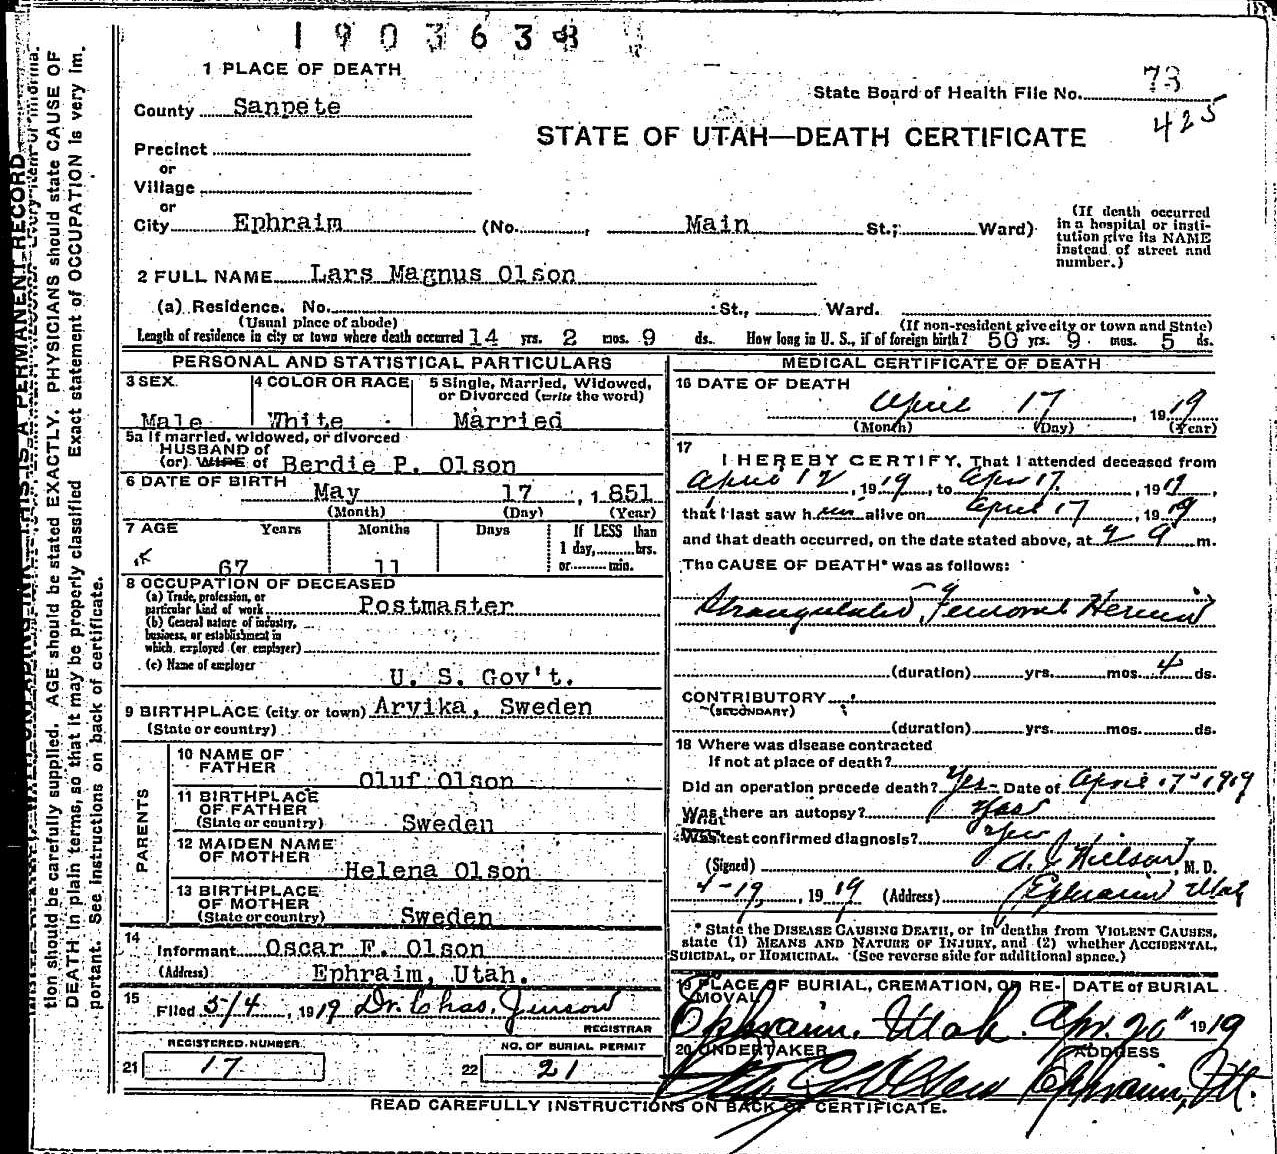 1903638
1 PLACE OF DEATH
County Sanpete
State Board of Health File No. 73
425
STATE OF UTAH—DEATH CERTIFICATE
Precinct
or
Village
or
City Ephraim (No. , Main St.; Ward)
(If death occurred in a hospital or insti-
tution give its NAME
instead of street and
number.)
2 FULL NAME Lars Magnus Olson
(a) Residence. No. St., Ward.
(Usual place of abode) (If non-resident give city or town and State)
Length of residence in city or town where death occurred 14 yrs. 2 mos. 9 ds. How long in U. S., if of foreign birth? 50 yrs. 9 mos. 5 ds.
PERSONAL AND STATISTICAL PARTICULARS
3 SEX 4 COLOR OR RACE 5 Single, Married, Widowed,
or Divorced (write the word)
Male White Married
5a If married, widowed, or divorced
HUSBAND of
(or) WIFE of Berdie P. Olson
6 DATE OF BIRTH May 17 , 1 851
(Month) (Day) (Year)
7 AGE Years Months Days If LESS than
1 day, hrs.
67 11 or min.
8 OCCUPATION OF DECEASED
(a) Trade, profession, or
particular kind of work Postmaster
(b) General nature of industry,
business, or establishment in
which employed (or employer)
(c) Name of employer
U. S. Gov't.
9 BIRTHPLACE (city or town) Arvika, Sweden
(State or country)
PARENTS
10 NAME OF
FATHER Oluf Olson
11 BIRTHPLACE
OF FATHER
(State or country) Sweden
12 MAIDEN NAME
OF MOTHER Helena Olson
13 BIRTHPLACE
OF MOTHER
(State or country) Sweden
14
Informant Oscar F. Olson
(Address) Ephraim, Utah.
15 Filed 5/4 , 1919 Dr. Chas. Jenson
REGISTRAR
REGISTERED NUMBER NO. OF BURIAL PERMIT
21 17 22 21
MEDICAL CERTIFICATE OF DEATH
16 DATE OF DEATH
April 17 , 1919
(Month) (Day) (Year)
17
I HEREBY CERTIFY, That I attended deceased from
April 12 , 1919, to Apr 17 , 1919,
that I last saw him alive on April 17 , 1919,
and that death occurred, on the date stated above, at m.
The CAUSE OF DEATH* was as follows:
Strangulated Femoral Hernia
(duration) yrs. mos. 4 ds.
CONTRIBUTORY
(SECONDARY)
(duration) yrs. mos. ds.
18 Where was disease contracted
If not at place of death?
Did an operation precede death? Yes - Date of April 17 - 1919
Was there an autopsy? Yes
What test confirmed diagnosis?
(Signed) A. J. Nielson, M. D.
4-19, , 1919 (Address) Ephraim Utah
* State the DISEASE CAUSING DEATH, or in deaths from VIOLENT CAUSES,
state (1) MEANS AND NATURE OF INJURY, and (2) whether ACCIDENTAL,
SUICIDAL, or HOMICIDAL. (See reverse side for additional space.)
19 PLACE OF BURIAL, CREMATION, OR RE- DATE of BURIAL
MOVAL
Ephraim, Utah. Apr. 20" 1919
20 UNDERTAKER ADDRESS
Ephraim, Ut.
READ CAREFULLY INSTRUCTIONS ON BACK OF CERTIFICATE.
THIS IS A PERMANENT RECORD
tion should be carefully supplied. AGE should be stated EXACTLY. PHYSICIANS should state CAUSE OF
DEATH in plain terms, so that it may be properly classified. Exact statement of OCCUPATION is very im.
portant. See instructions on back of certificate.